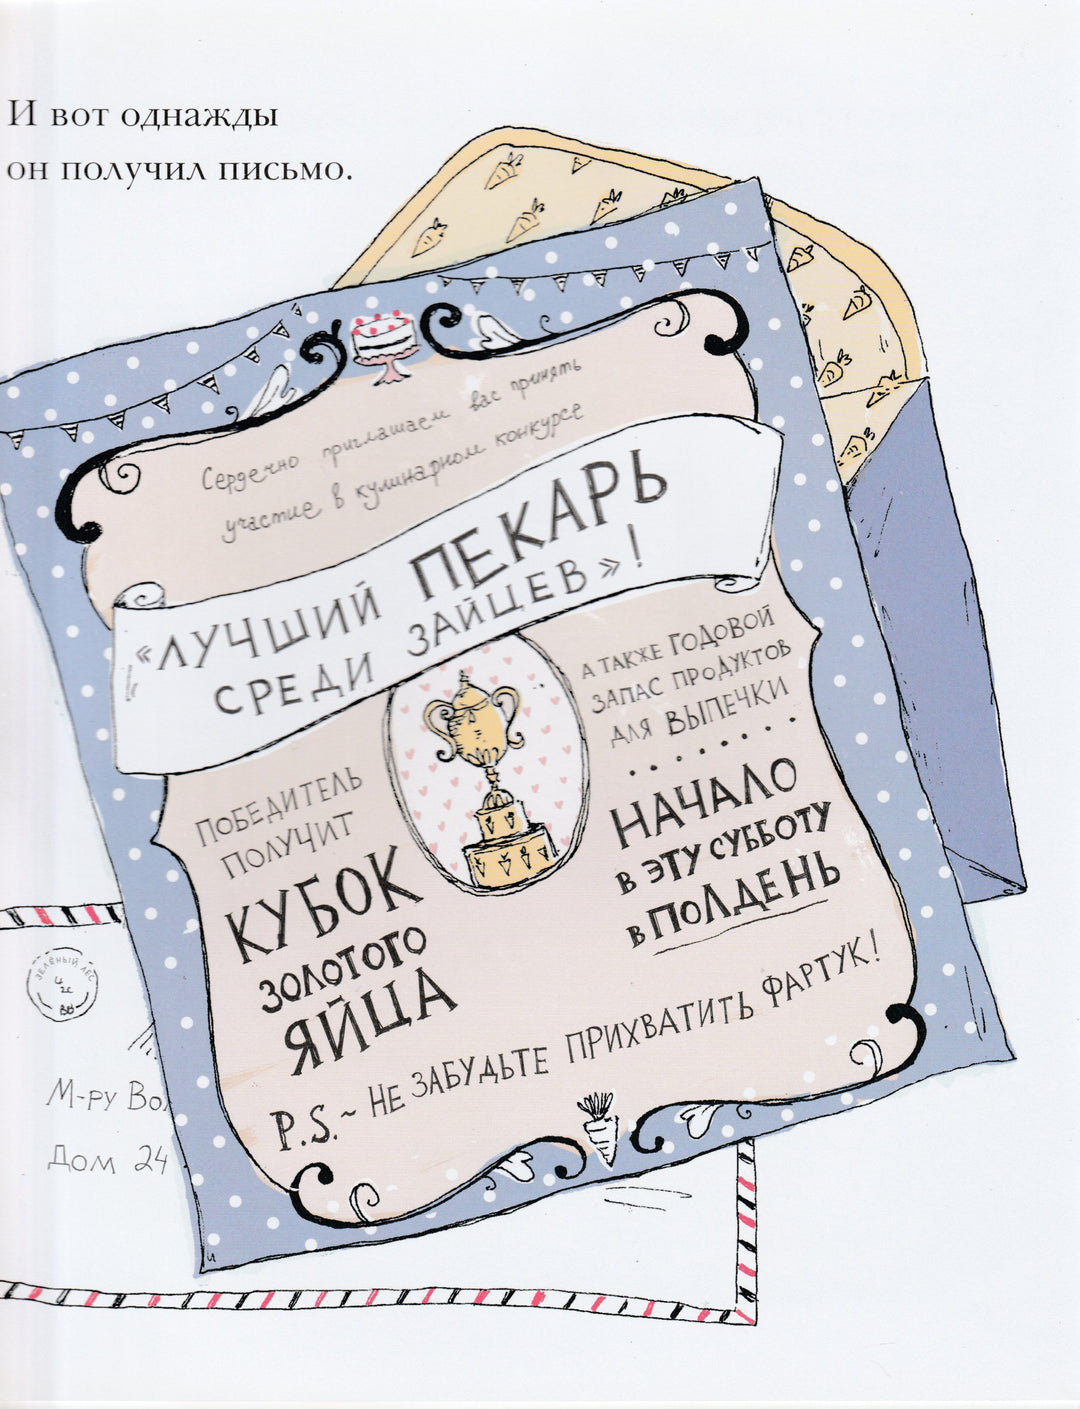 И вот однажды
он получил письмо.
Сердечно приглашаем вас принять
участие в кулинарном конкурсе
«ЛУЧШИЙ ПЕКАРЬ
СРЕДИ ЗАЙЦЕВ»!
ПОБЕДИТЕЛЬ
ПОЛУЧИТ
КУБОК
ЗОЛОТОГО
ЯЙЦА
А ТАКЖЕ ГОДОВОЙ
ЗАПАС ПРОДУКТОВ
ДЛЯ ВЫПЕЧКИ
НАЧАЛО
В ЭТУ СУББОТУ
В ПОЛДЕНЬ
P.S. ~ НЕ ЗАБУДЬТЕ ПРИХВАТИТЬ ФАРТУК!
ЗЕЛЁНЫЙ ЛЕС
М-ру Вол
Дом 24